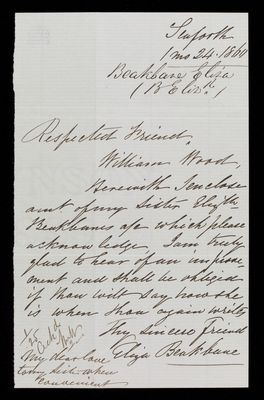 Seaforth
1 mo 24. 1860
Beakbane Eliza
(B Elizth.)
Respected Friend,
William Wood,
Herewith I enclose
amt. of my Sister Elizth
Beakbane's a/c which please
acknowledge, I am truly
glad to hear of an improve-
ment and shall be obliged
if thou wilt say how she
is when thou again writes
Thy sincere Friend
Eliza Beakbane
My dear love
to my sister when
convenient